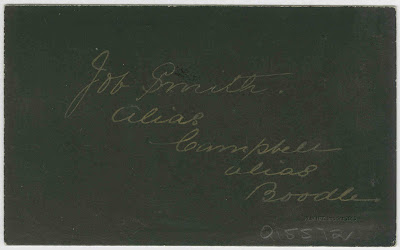 Job Smith.
alias
Campbell
alias
Boodle.